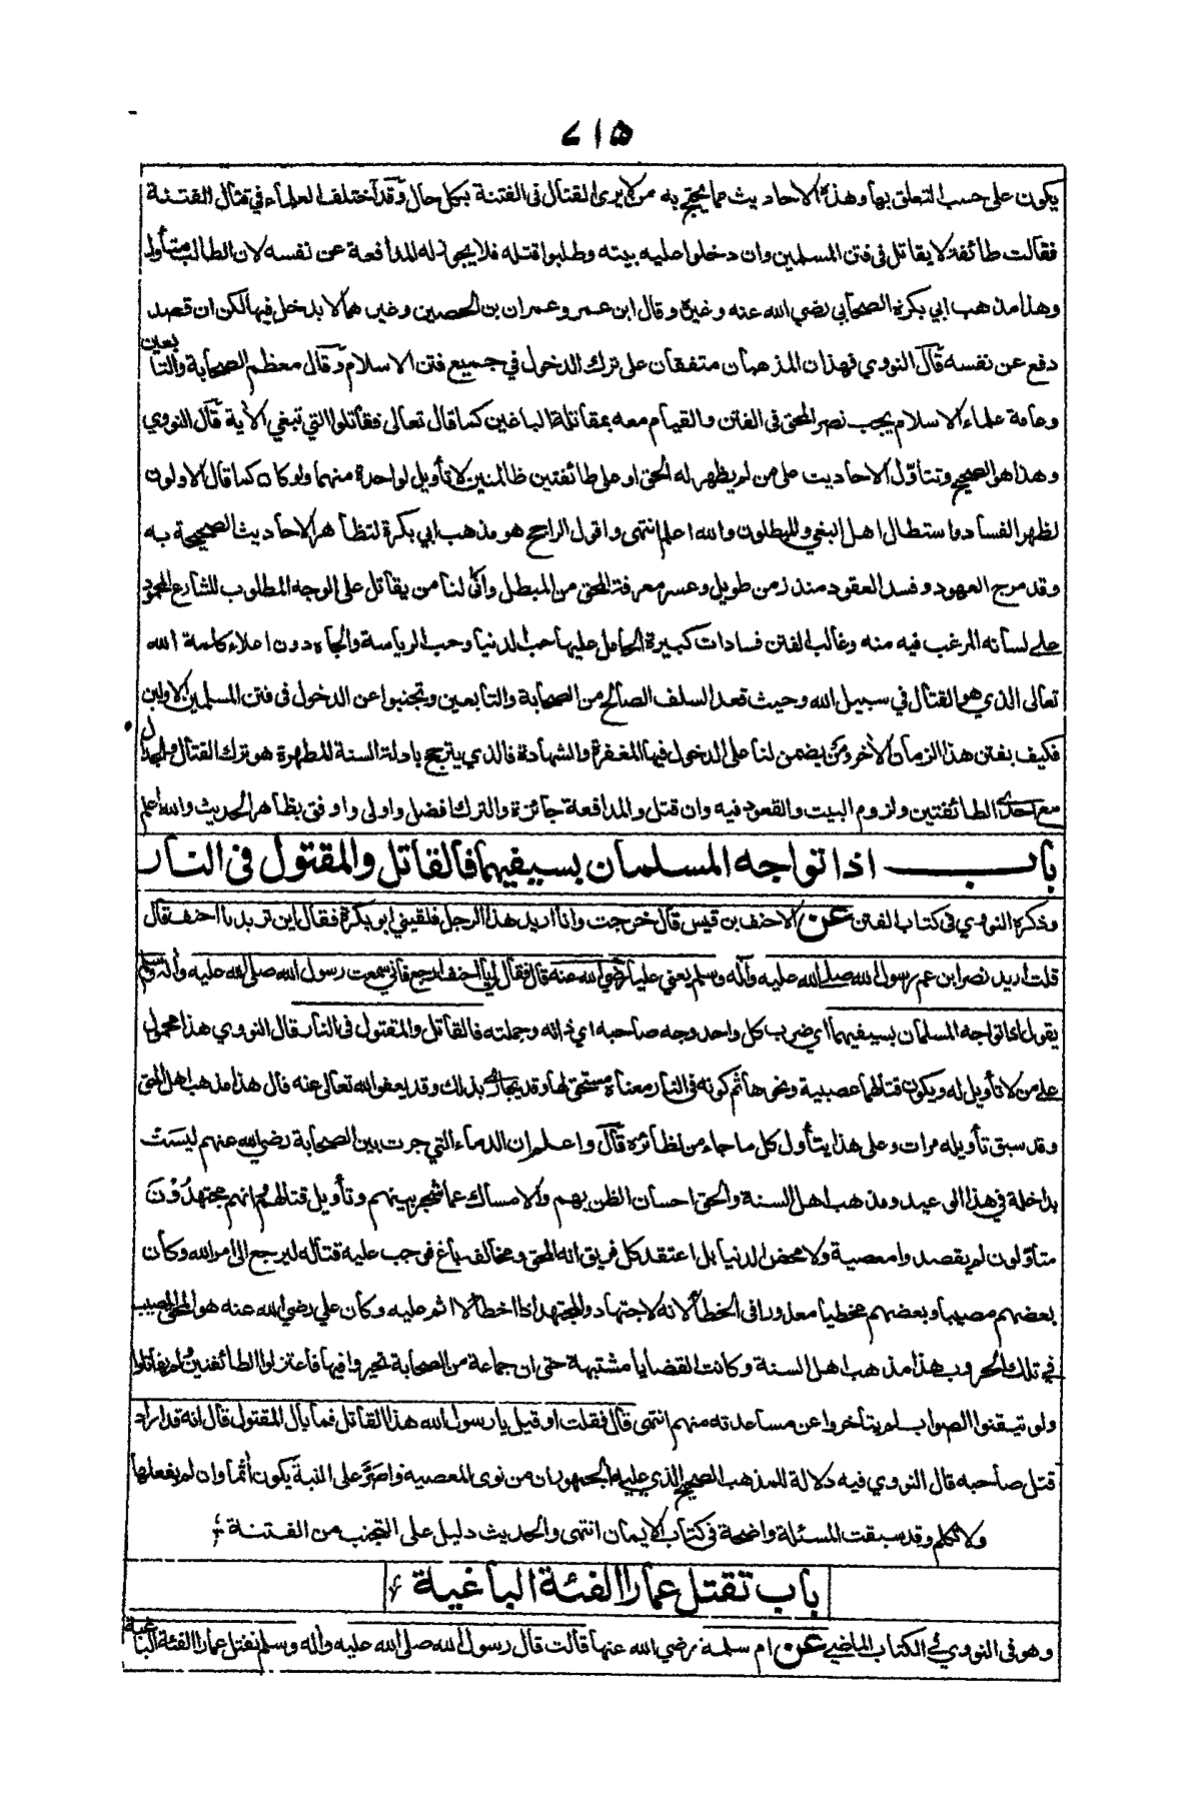 ٧١٥
يكون على حسب التعلق بها وهذه الاحاديث مما يحتج به من لا يرى القتال فى الفتنة بكل حال وقد اختلف العلماء في قتال الفتنة
فقالت طائفة لا يقاتل فى فتن المسلمين وان دخلوا عليه بيته وطلبوا قتله فلا يجوز له المدافعة عن نفسه لان الطالب متأول
وهذا مذهب ابي بكرة الصحابي رضي الله عنه وغيره وقال ابن عمر وعمران بن الحصين وغيرهما لا يدخل فيها لكن ان قصد
دفع عن نفسه قال النووي فهذان المذهبان متفقان على ترك الدخول في جميع فتن الاسلام وقال معظم الصحابة والتابعين
وعامة علماء الاسلام يجب نصر المحق فى الفتن والقيام معه بمقاتلة الباغين كما قال تعالى فقاتلوا التي تبغي الأية قال النووي
وهذا هو الصحيح وتتأول الاحاديث على من لم يظهر له الحق او على طائفتين ظالمتين لا تأويل لواحدة منهما ولو كان كما قال الاولون
لظهر الفساد واستطال اهل البغي والمبطلون والله اعلم انتهى واقول الراجح هو مذهب ابي بكرة لتظاهر الاحاديث الصحيحة به
وقد مرج العهود وفسد العقود منذ زمن طويل وعسر معرفة المحق من المبطل وأنّى لنا من يقاتل على الوجه المطلوب للشارع المحمود
على لسانه المرغب فيه منه وغالب الفتن فسادات كبيرة الحامل عليها حب الدنيا وحب الرياسة والجاه دون اعلاء كلمة الله
تعالى الذي هو القتال في سبيل الله وحيث قعد السلف الصالح من الصحابة والتابعين وتجنبوا عن الدخول فى فتن المسلمين الاولين
فكيف بفتن هذا الزمان الأخر ومن يضمن لنا على الدخول فيها المغفرة والشهادة فالذي يترجح بادلة السنة المطهرة هو ترك القتال والجدال
مع احدى الطائفتين ولزوم البيت والقعود فيه وان قتل والمدافعة جائزة والترك افضل واولى واوفق بظاهر الحديث والله اعلم
باب اذا تواجه المسلمان بسيفيهما فالقاتل والمقتول فى النار
وذكره النووي فى كتاب الفتن عن الاحنف بن قيس قال خرجت وانا اريد هذا الرجل فلقيني ابو بكرة فقال اين تريد يا احنف قال
قلت اريد نصر ابن عم رسول الله صلى الله عليه وآله وسلم يعني عليا رضي الله عنه قال فقال لي يا احنف ارجع فاني سمعت رسول الله صلى الله عليه وآله وسلم
يقول اذا تواجه المسلمان بسيفيهما اي ضرب كل واحد وجه صاحبه اي ذاته وجملته فالقاتل والمقتول فى النار قال النووي هذا محمول
على من لا تأويل له ويكون قتالهما عصبية ونحوها ثم كونه فى النار معناه مستحق لها وقد يجازى بذلك وقد يعفو الله تعالى عنه قال هذا مذهب اهل الحق
وقد سبق تأويله مرات وعلى هذا يتأول كل ما جاء من نظائره قال واعلم ان الدماء التي جرت بين الصحابة رضي الله عنهم ليست
بداخلة في هذا الوعيد ومذهب اهل السنة والحق احسان الظن بهم والامساك عما شجر بينهم وتأويل قتالهم وانهم مجتهدون
متأولون لم يقصدوا معصية ولا محض الدنيا بل اعتقد كل فريق انه المحق ومخالفه باغ فوجب عليه قتاله ليرجع الى امر الله وكان
بعضهم مصيبا وبعضهم مخطيا معذورا فى الخطأ لانه لاجتهاد والمجتهد اذا اخطأ لا اثم عليه وكان علي رضي الله عنه هو المحق المصيب
في تلك الحروب هذا مذهب اهل السنة وكانت القضايا مشتبهة حتى ان جماعة من الصحابة تحيروا فيها فاعتزلوا الطائفتين ولم يقاتلوا
ولو تيقنوا الصواب لم يتأخروا عن مساعدته منهم انتهى قال فقلت او قيل يا رسول الله هذا القاتل فما بال المقتول قال انه قد اراد
قتل صاحبه قال النووي فيه دلالة للمذهب الصحيح الذي عليه الجمهور ان من نوى المعصية واصر على النية يكون أثما وان لم يفعلها
ولا تكلم وقد سبقت المسئلة واضحة فى كتاب الايمان انتهى والحديث دليل على التجنب من الفتنة
باب تقتل عمارا الفئة الباغية
وهو فى النووي في الكتاب الماضي عن ام سلمة رضي الله عنها قالت قال رسول الله صلى الله عليه وآله وسلم تقتل عمارا الفئة الباغية